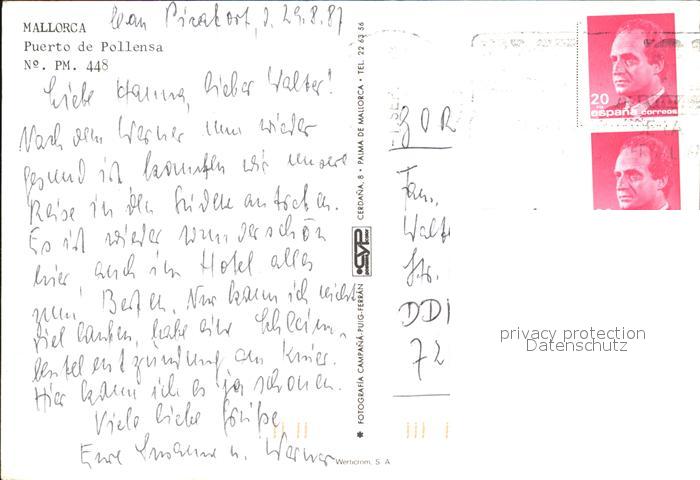 MALLORCA
Puerto de Pollensa
Nº. PM. 448
Can Picafort, d. 29.8.87
Liebe Hanna, lieber Walter!
Nach dem Werner nun wieder
gesund ist konnten wir unsere
Reise in den Süden antreten.
Es ist wieder wunderschön
hier, auch im Hotel alles
zum Besten. Nur kann ich nicht
viel laufen, habe eine Schleim-
beutelentzündung am Knie.
Hier kann ich es ja schonen.
Viele liebe Grüße
Eure Susanne u. Werner
✱ FOTOGRAFÍA CAMPAÑÁ-PUIG-FERRÁN
CYP
CERDAÑA, 8 • PALMA DE MALLORCA • TEL. 22 63 56
Werticrom, S. A
20
españa correos
Fam.
Walt
Str.
DDR
72
privacy protection
Datenschutz